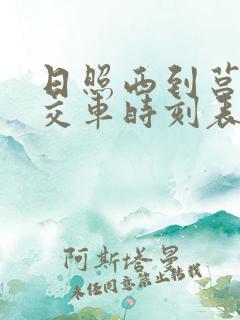 日照西到莒
交车时刻表
阿斯塔曼
未经同意禁止转载